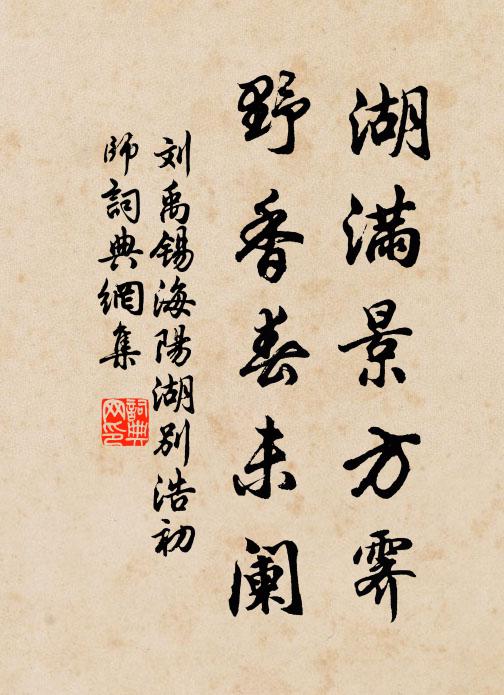 湖满景方霁
野香春未阑
刘禹锡海阳湖别浩初
师词典網集
詞典
网印